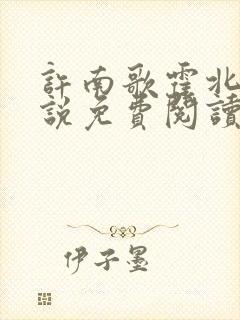 許南歌霍北
說免費閱讀
伊子墨